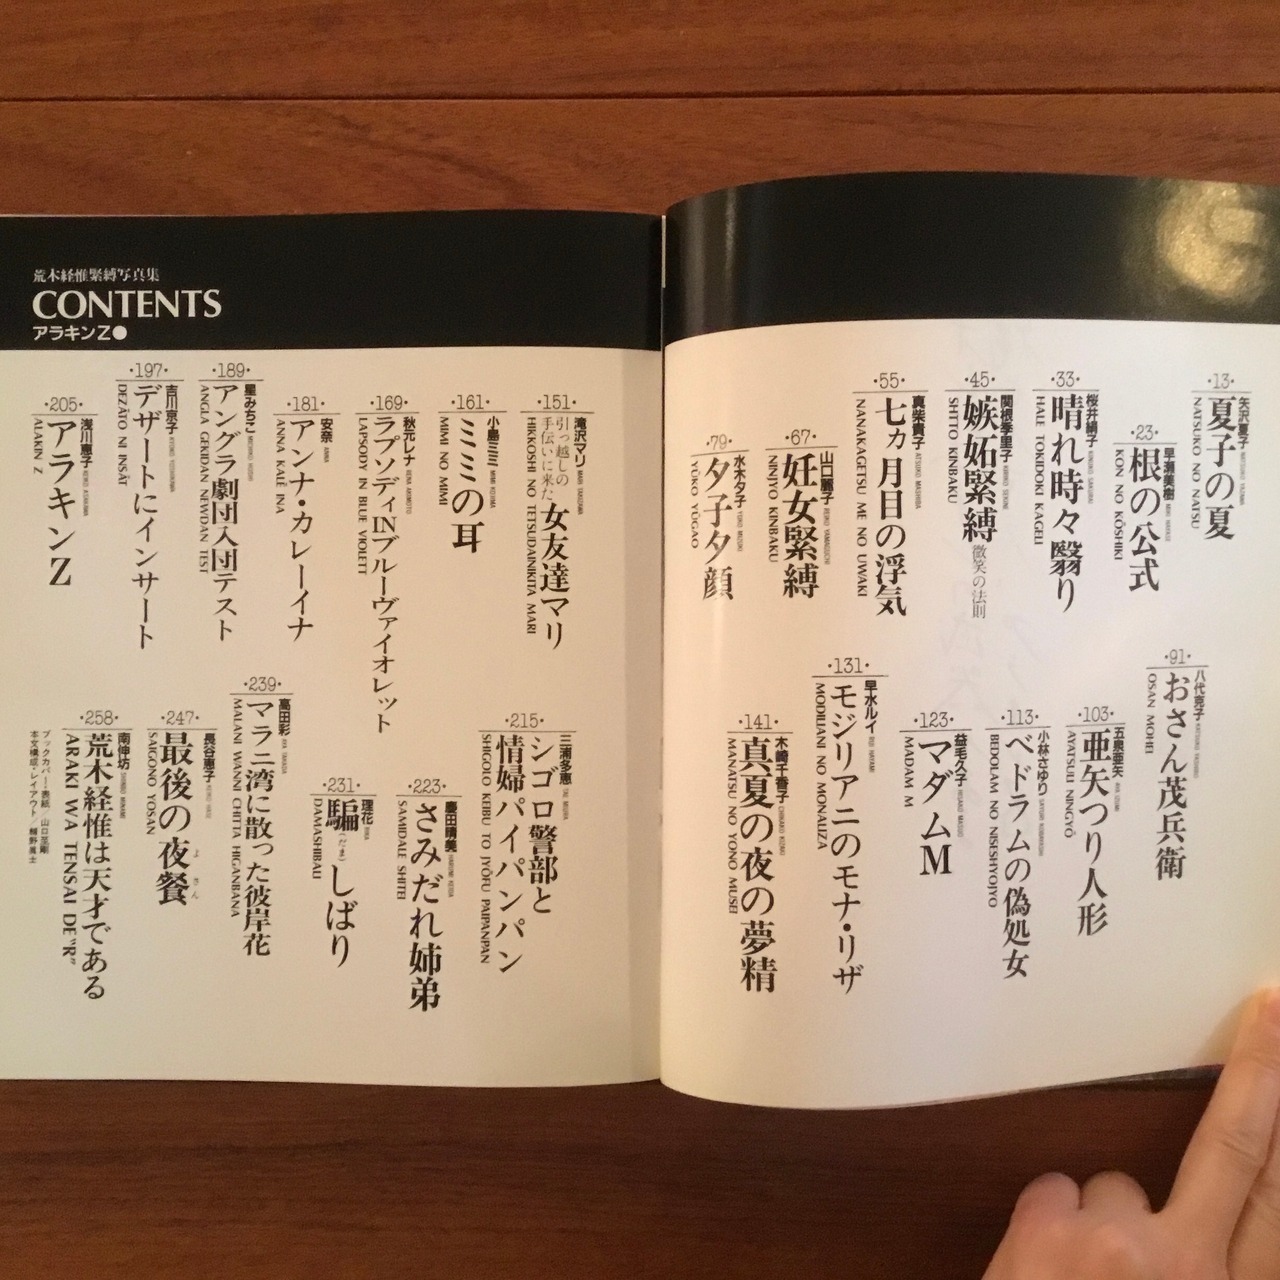 荒木経惟緊縛写真集
CONTENTS
アラキンZ●
・13・
矢沢夏子
夏子の夏
NATSUKO NO NATSU
・23・
早瀬美樹
根の公式
KON NO KŌSHIKI
・33・
桜井絹子
晴れ時々翳り
HALE TOKIDOKI KAGELI
・45・
関根季里子
嫉妬緊縛 微笑の法則
SHITTO KINBAKU
・55・
真柴貴子
七ヵ月目の浮気
NANAKAGETSU ME NO UWAKI
・67・
山口麗子
妊女緊縛
NINJYO KINBAKU
・79・
水木夕子
夕子夕顔
YŪKO YŪGAO
・91・
八代克子
おさん茂兵衛
OSAN MOHEI
・103・
五泉亜矢
亜矢つり人形
AYATSULI NINGYŌ
・113・
小林さゆり
ベドラムの偽処女
BEDOLAM NO NISESHYOJYO
・123・
益毛久子
マダムM
MADAM M
・131・
早水ルイ
モジリアニのモナ・リザ
MODILIANI NO MONALIZA
・141・
木崎千香子
真夏の夜の夢精
MANATSU NO YONO MUSEI
・151・
滝沢マリ
引っ越しの手伝いに来た女友達マリ
HIKKOSHI NO TETSUDAINIKITA MARI
・161・
小島ミミ
ミミの耳
MIMI NO MIMI
・169・
秋元レナ
ラプソディINブルーヴァイオレット
LAPSODY IN BLUE VIOLETT
・181・
安奈
アンナ・カレーイナ
ANNA KALE INA
・189・
星みちこ
アングラ劇団入団テスト
ANGLA GEKIDAN NEWDAN TEST
・197・
吉川京子
デザートにインサート
DEZĀTO NI INSĀT
・205・
浅川恵子
アラキンZ
ALAKIN Z
・215・
三浦多恵
シゴロ警部と
情婦パイパンパン
SHIGOLO KEIBU TO JYŌFU PAIPANPAN
・223・
慶田晴美
さみだれ姉弟
SAMIDALE SHITEI
・231・
理花
騙しばり
(だま)
DAMASHIBALI
・239・
高田彩
マラニ湾に散った彼岸花
MALANI WANNI CHITTA HIGANBANA
・247・
長谷恵子
最後の夜餐
よさん
SAIGONO YOSAN
・258・
南伸坊
荒木経惟は天才である
ARAKI WA TENSAI DE "R"
ブックカバー・表紙／山口至剛
本文構成・レイアウト／